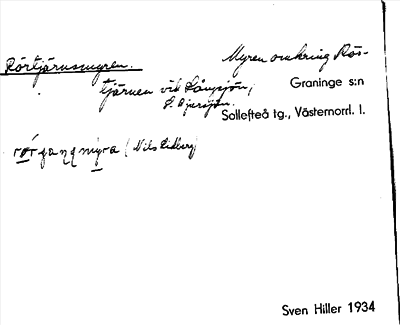 Rörtjärnsmyren.
Myren omkring Rös-
tjärnen vid Långsjön,
S. Djursjön.
Graninge s:n
Sollefteå tg., Västernorrl. l.
(Nils Edberg)
Sven Hiller 1934